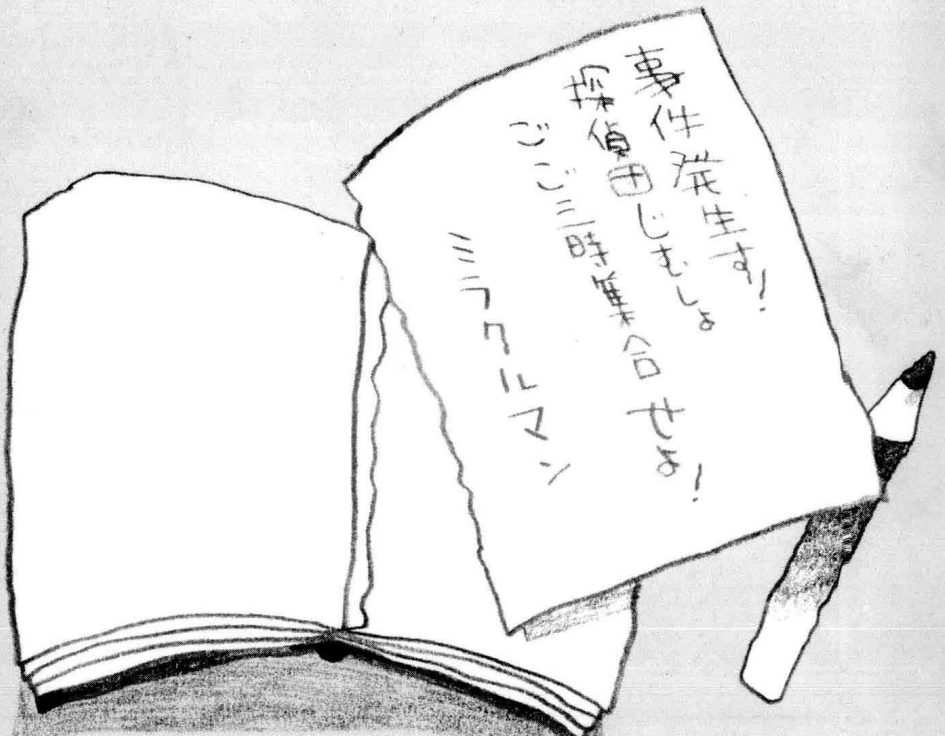 事件発生す!
探偵団じむしょ
ごご三時集合せよ!
ミラクルマン